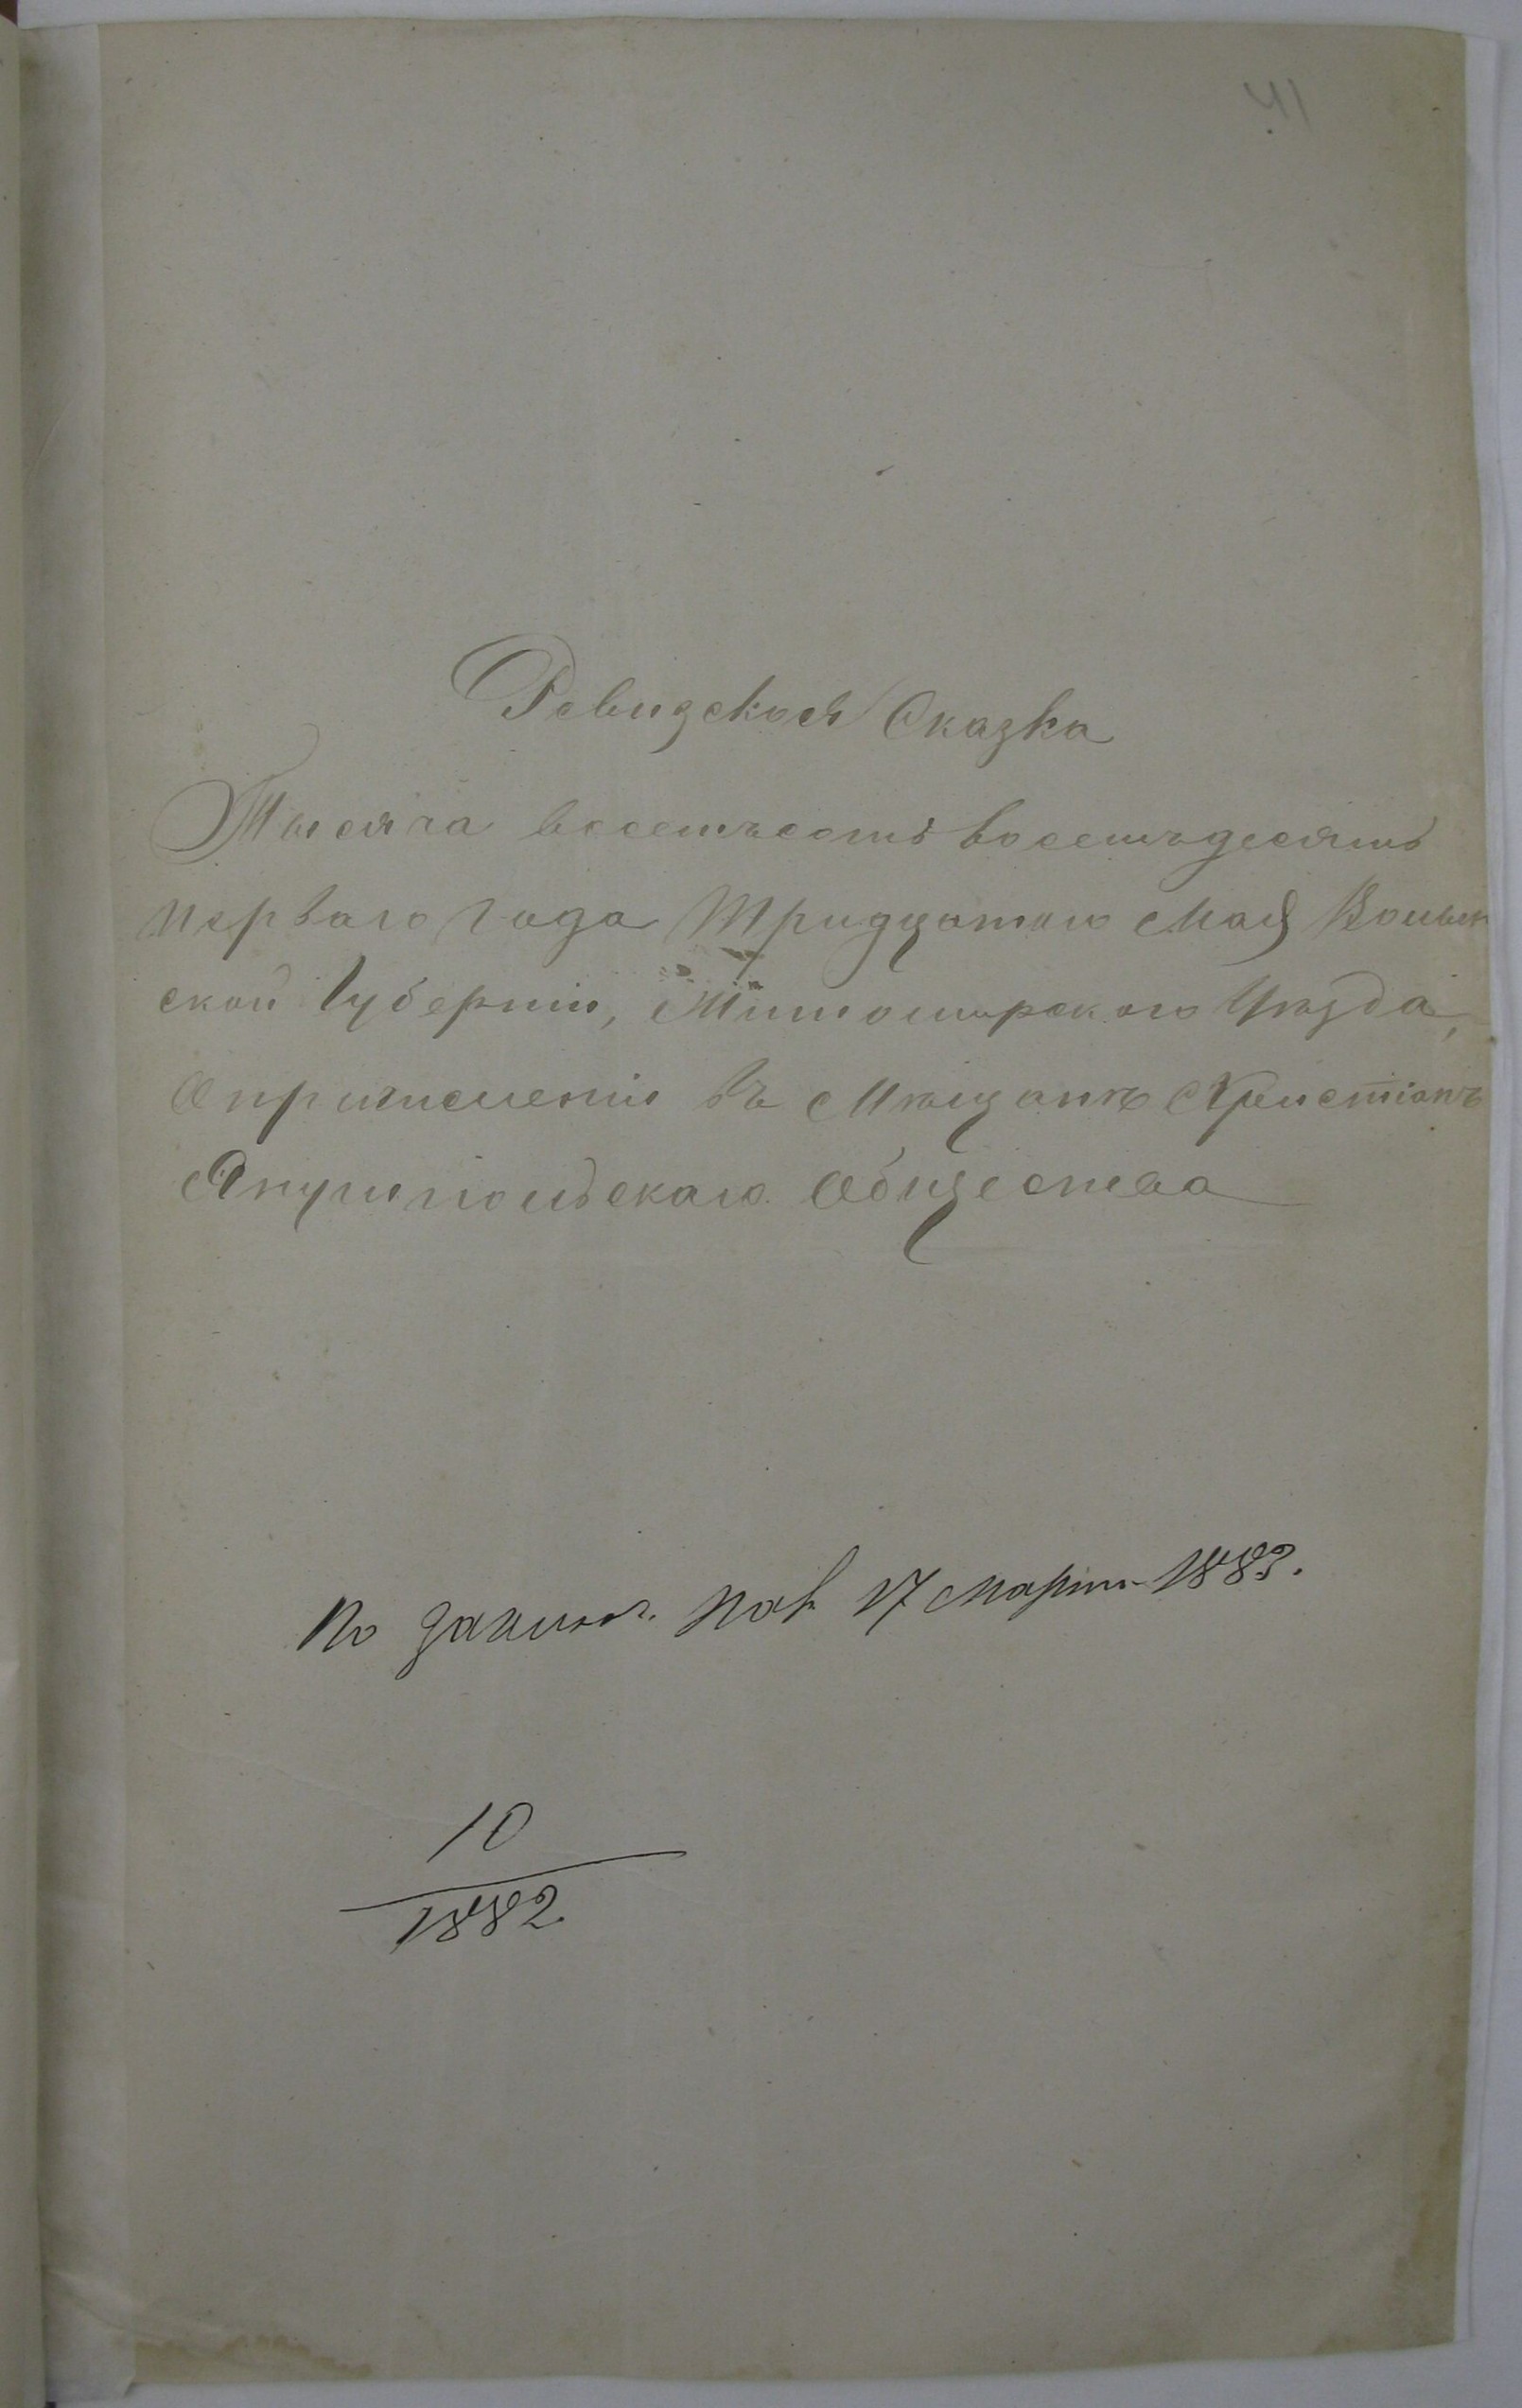 41
Ревизская Сказка
Тысяча восемьсотъ восемьдесятъ
перваго года тридцатого Мая Волын
ской Губернии, Житомирского Уѣзда,
О причислении въ Мѣщанѣ Христіанъ
Янушпольскаго Общества
По заключ. Пал. 17 Марта 1883.
10
1882